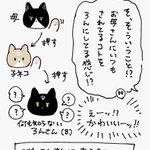 そ、そういうこと!?
お母さんにいつも
されてるコトを
ろんにしてる感じ!?
母
押す
子ネコ
押す
えーッ!?
かわいいーッ!!
?
?
?
?
何も知らない
ろんさん(8)